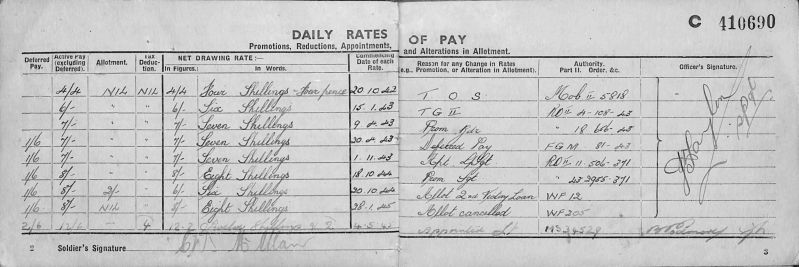 C 410690
DAILY RATES OF PAY
Promotions, Reductions, Appointments, and Alterations in Allotment.
Deferred Pay. Active Pay (excluding Deferred). Allotment. Tax Deduc-tion. NET DRAWING RATE:— In Figures. In Words. Commencing Date of each Rate. Reason for any Change in Rates (e.g., Promotion, or Alteration in Allotment). Authority. Part II. Order, &c. Officer's Signature.
4/4 NIL NIL 4/4 Four Shillings Four pence 20.10.42 T O S Mob II 5818
6/- " " 6/- Six Shillings 15.1.43 T G II RO II 4-108-43
7/- " " 7/- Seven Shillings 9.4.43 Prom " 18 656-43
1/6 7/- " " 7/- Seven Shillings 20.4.43 Deferred Pay FGM 81-43
1/6 7/- " " 7/- Seven Shillings 1.11.43 RO II 506-371
1/6 8/- " " 8/- Eight Shillings 18.10.44 Prom Sgt " 23 2955-371
1/6 8/- 2/- " 6/- Six Shillings 20.10.44 Allot 2nd Victory Loan WF 12
1/6 8/- NIL " 8/- Eight Shillings 28.1.45 Allot cancelled WF 205
2/6 12/6 Shillings Appointed
2 Soldier's Signature 3